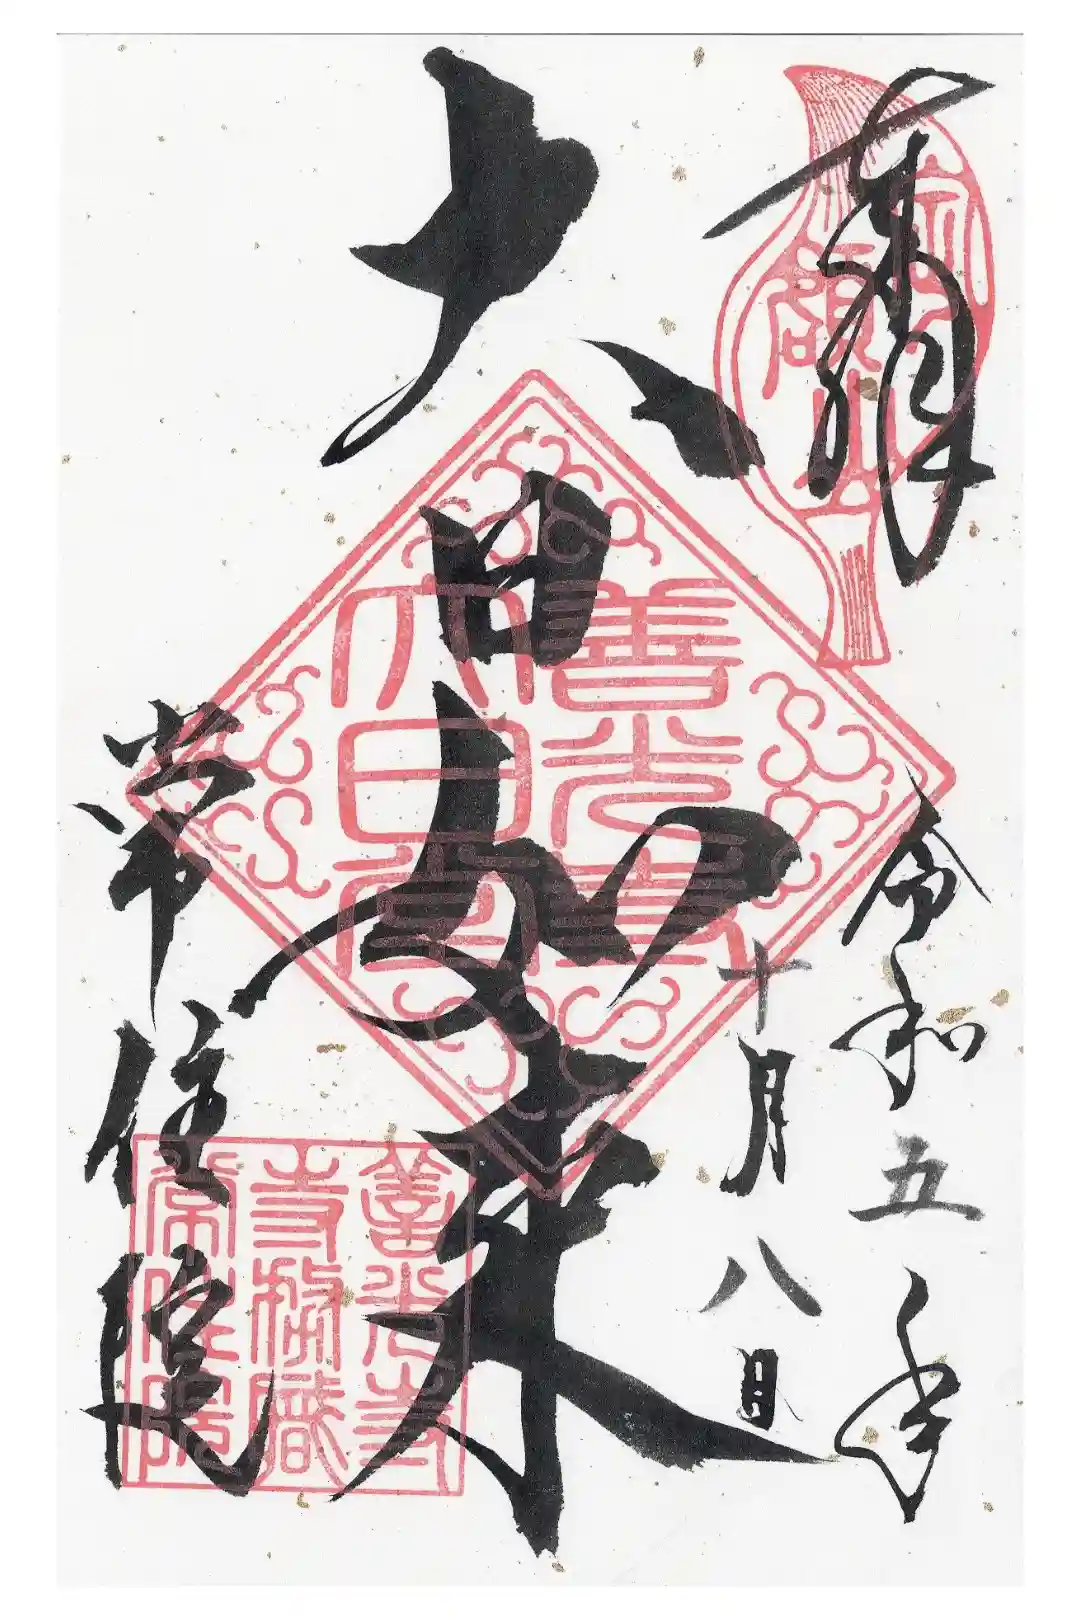 奉拝
定額山
令和五年
十月八日
大日如来
善光
大日
常住院
善光寺
寺務職
常住院